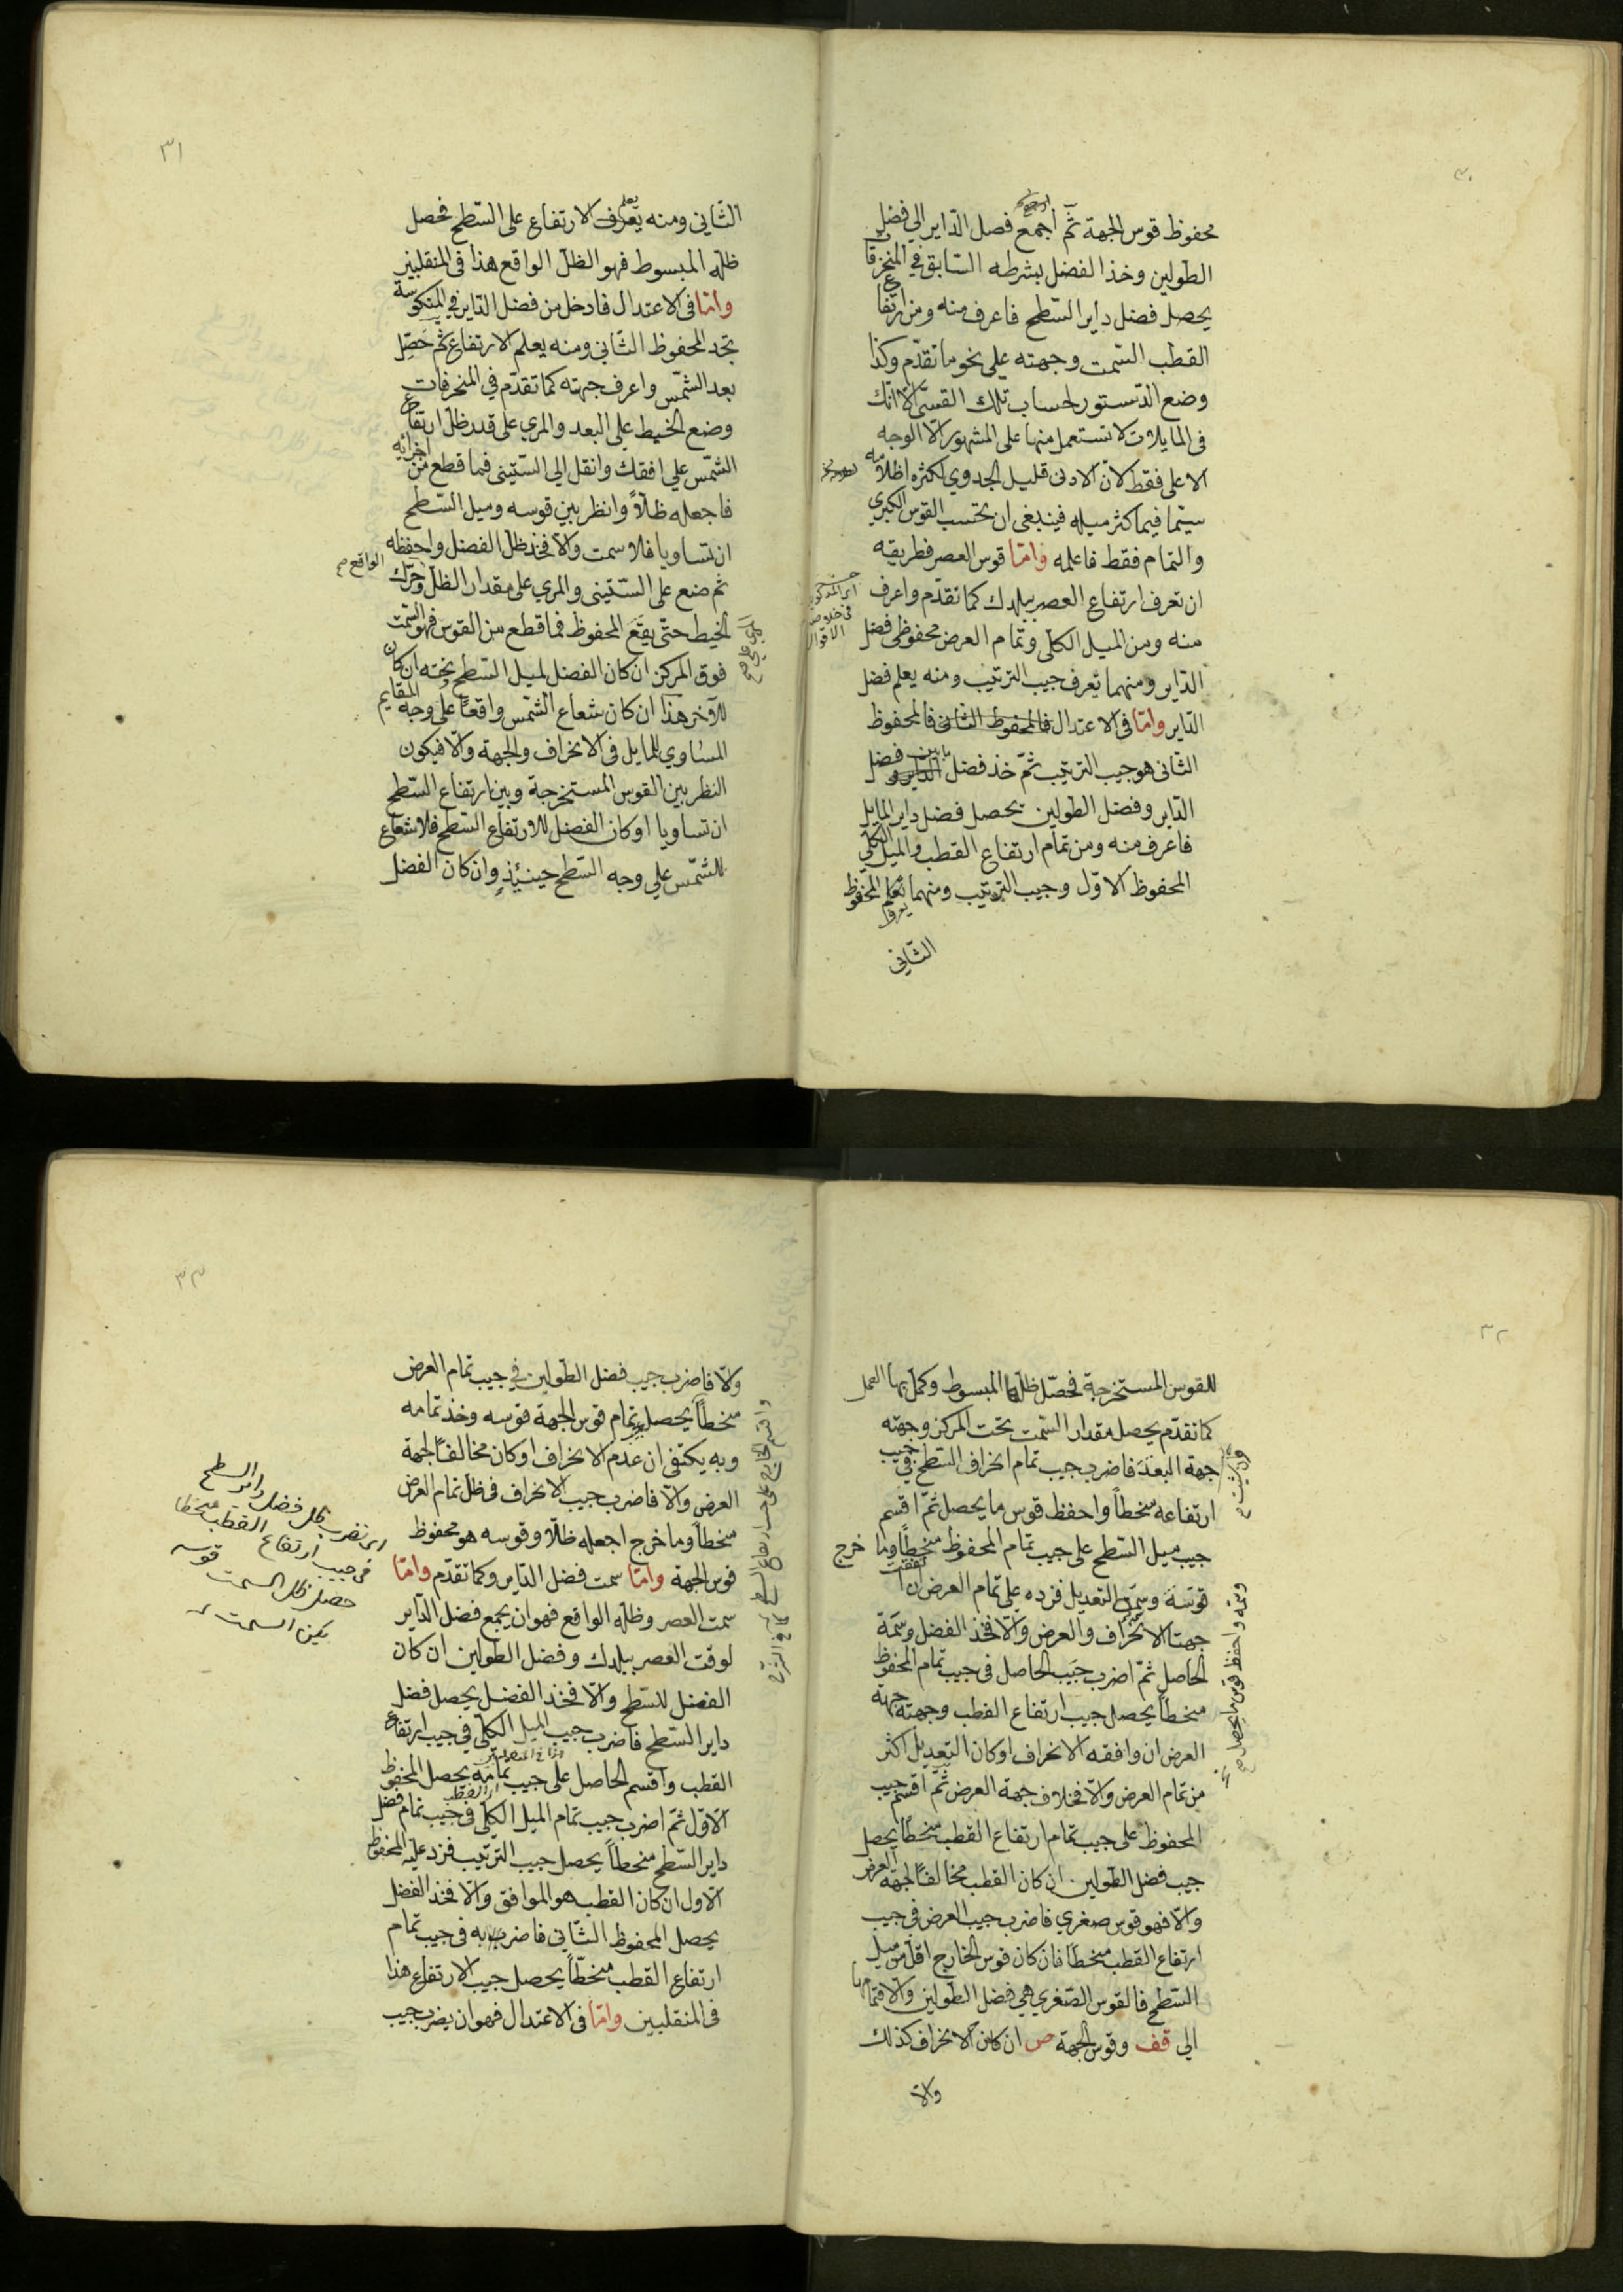 ٣٠
محفوظ قوس الجهة ثمّ اجمع فصل الدّاير الي فضل
الطولين وخذ الفضل بشرطه السّابق في المنحرفات
يحصل فضل داير السّطح فاعرف منه ومن ارتفاع
القطب السّمت وجهته علي نحو ما تقدّم وكذا
وضع الدّستور لحساب تلك القسيّ الّا انّك
في المايلات لا تستعمل منها علي المشهور الّا الوجه
الاعلي فقط لانّ الادنى قليل الجدوي لكثرة اظلامه
سيّما فيما كثر ميله فينبغي ان تحتسب القوس الكبري
والتمام فقط فاعلمه وامّا قوس العصر فطريقه
ان تعرف ارتفاع العصر ببلدك كما تقدّم واعرف
منه ومن الميل الكلّي وتمام العرض محفوظي فضل
الدّاير ومنهما تعرف جيب الترتيب ومنه يعلم فضل
الدّاير وامّا في الاعتدال فالمحفوظ الثاني فالمحفوظ
الثاني هو جيب الترتيب ثمّ خذ فضل ما بين فضل
الدّاير وفضل الطولين يحصل فضل داير المايل
فاعرف منه ومن تمام ارتفاع القطب والميل الكلّي
المحفوظ الاوّل وجيب الترتيب ومنهما تعلم المحفوظ
الثّاني
في خلاصة
الاقوال
٣١
الثّاني ومنه يعرف الارتفاع على السّطح فحصل
ظلّه المبسوط فهو الظلّ الواقع هذا في المنقلبين
وامّا في الاعتدال فادخل من فضل الدّاير في المنكوسة
تجد المحفوظ الثّاني ومنه يعلم الارتفاع ثم حَصِّل
بعد الشّمس واعرف جهته كما تقدّم في المنحرفات
وضع الخيط علي البعد والمري علي قدر ظلّ ارتفاع
الشّمس علي افقك وانقل الي السّتيني فما قطع من اجزائه
فاجعله ظلّاً وانظر بين قوسه وميل السّطح
ان تساويا فلا سمت والّا فخذ ظلّ الفضل واحفظه
ثم ضع على السّتيني والمري علي مقدار الظلّ وحرّك
الواقع صح
الخيط حتّى يقَعَ المحفوظ فما قطع من القوس فهو السّمت
فوق المركز ان كان الفضل لميل السّطح وتحته ان كان
للآخر هذا ان كان شعاع الشّمس واقعاً علي وجه القايم
المساوي للمايل في الانحراف والجهة والّا فيكون
النظر بين القوس المستخرجة وبين ارتفاع السّطح
ان تساويا او كان الفضل للارتفاع السّطح فلا شعاع
للشّمس علي وجه السّطح حينئذٍ وان كان الفضل
٣٢
للقوس المستخرجة فحصّل ظلّها المبسوط وكمّل بها العمل
كما تقدّم يحصل مقدار السّمت تحت المركز وجهته
جهة البعد فاضرب جيب تمام انحراف السّطح في جيب
ارتفاعه منحطاً واحفظ قوس ما يحصل ثمّ اقسم
جيب ميل السّطح علي جيب تمام المحفوظ منحطاً وما خرج
قوّسه وسَمّه التعديل فزده علي تمام العرض ان اتفقت
جهتا الانحراف والعرض والّا فخذ الفضل وسَمّه
الحاصل ثمّ اضرب جيب الحاصل في جيب تمام المحفوظ
منحطاً يحصل جيب ارتفاع القطب وجهته جهة
العرض ان وافقه الانحراف او كان التعديل اكثر
من تمام العرض والّا فخلاف جهة العرض ثمّ اقسم جيب
المحفوظ علي جيب تمام ارتفاع القطب منحطاً يحصل
جيب فضل الطّولين ان كان القطب مخالفاً لجهة العرض
والّا فهو قوس صغري فاضرب جيب العرض في جيب
ارتفاع القطب منحطاً فان كان قوس الخارج اقلّ من ميل
السّطح فالقوس الصّغري هي فضل الطّولين والّا فتمامها
الي قف وقوس الجهة ص ان كان الانحراف كذلك
والّا
وسمّه واحفظ قوس ما يحصل صح
٣٣
والّا فاضرب جيب فضل الطّولين في جيب تمام العرض
منحطاً يحصل تمام قوس الجهة قوسه وخذ تمامه
وبه يكتفى ان عدم الانحراف او كان مخالفاً لجهة
العرض والّا فاضرب جيب الانحراف في ظلّ تمام العرض
منحطاً وما خرج اجعله ظلّا وقوسه هو محفوظ
قوس الجهة وامّا سمت فضل الدّاير وكما تقدّم وامّا
سمت العصر وظلّه الواقع فهو ان يجمع فضل الدّاير
لوقت العصر ببلدك وفضل الطولين ان كان
الفضل للسّطح والّا فخذ الفضل يحصل فضل
داير السّطح فاضرب جيب الميل الكلّي في جيب ارتفاع
القطب واقسم الحاصل علي جيب تمامه يحصل المحفوظ
الاوّل ثمّ اضرب جيب تمام الميل الكلّي في جيب تمام فضل
داير السّطح منحطاً يحصل جيب الترّتيب فزد عليه المحفوظ
الاول ان كان القطب هو الموافق والّا فخذ الفضل
يحصل المحفوظ الثّاني فاضربه في جيب تمام
ارتفاع القطب منحطّاً يحصل جيب الارتفاع هذا
في المنقلبين وامّا في الاعتدال فهو ان يضرب جيب
اى تضرب ظل فضل داير السطح
في جيب ارتفاع القطب منحطا
حصل ظل السمت قوسه
يكن السمت